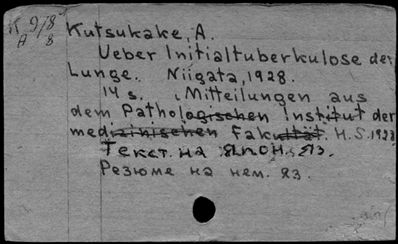 К 9/8
А 8
Kutsukake, A.
Ueber Initialtuberkulose der
Lunge. Niigata, 1928.
14 s. (Mitteilungen aus
dem Pathologischen Institut der
medizinischen Fakultät. H.S. 1928
Текст на япон. яз.
Резюме на нем. яз.